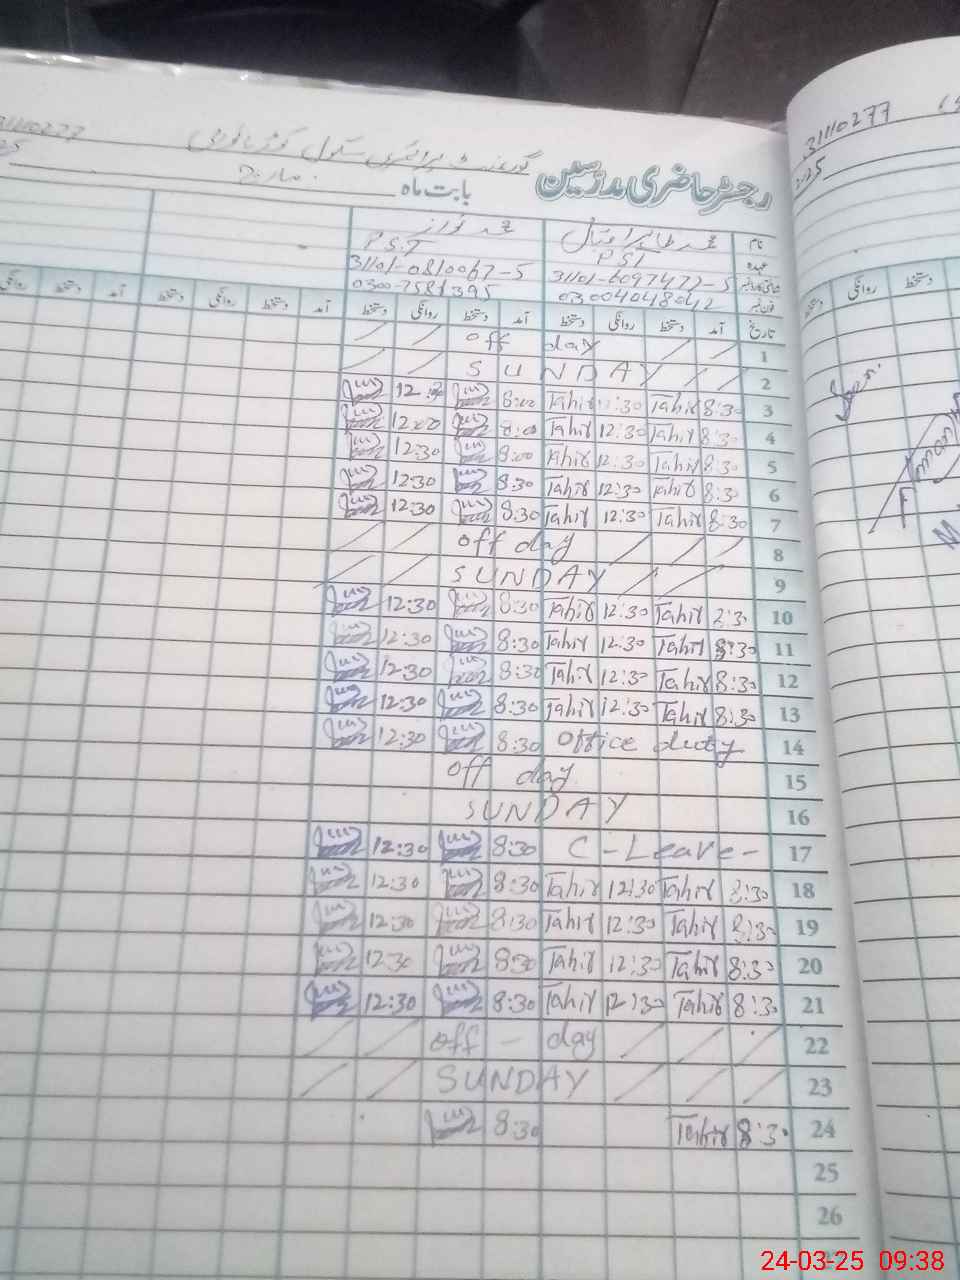 31110277
گورنمنٹ پرائمری سکول
رجسٹر حاضری مدرسین بابت ماہ مارچ
نام محمد طاہر اقبال محمد نواز
عہدہ PST P.S.T
شناختی کارڈ نمبر 31101-6097477-5 31101-0810067-5
فون نمبر 03004048042 0300-7581395
تاریخ آمد دستخط روانگی دستخط آمد دستخط روانگی دستخط آمد دستخط روانگی دستخط آمد
1 off day
2 SUNDAY
3 8:30 Tahir 12:30 Tahir 8:00 12:30
4 8:30 Tahir 12:30 Tahir 8:00 12:00
5 8:30 Tahir 12:30 Tahir 8:00 12:30
6 8:30 Tahir 12:30 Tahir 8:30 12:30
7 8:30 Tahir 12:30 Tahir 8:30 12:30
8 off day
9 SUNDAY
10 8:30 Tahir 12:30 Tahir 8:30 12:30
11 8:30 Tahir 12:30 Tahir 8:30 12:30
12 8:30 Tahir 12:30 Tahir 8:30 12:30
13 8:30 Tahir 12:30 Tahir 8:30 12:30
14 Office duty 8:30 12:30
15 off day
16 SUNDAY
17 C-Leave- 8:30 12:30
18 8:30 Tahir 12:30 Tahir 8:30 12:30
19 8:30 Tahir 12:30 Tahir 8:30 12:30
20 8:30 Tahir 12:30 Tahir 8:30 12:30
21 8:30 Tahir 12:30 Tahir 8:30 12:30
22 off - day
23 SUNDAY
24 8:30 Tahir 8:30
25
26
27
31110277
دستخط روانگی دستخط
24-03-25 09:38